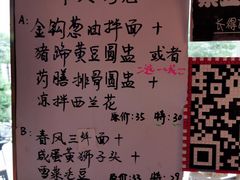 A: 金钩葱油拌面+
猪蹄黄豆圆盅 或者
二选一
药膳排骨圆盅+
凉拌西兰花
原价:35 特:30
B: 春风三丝面+
咸蛋黄狮子头+
雪菜毛豆
原价:33 特:29
长得